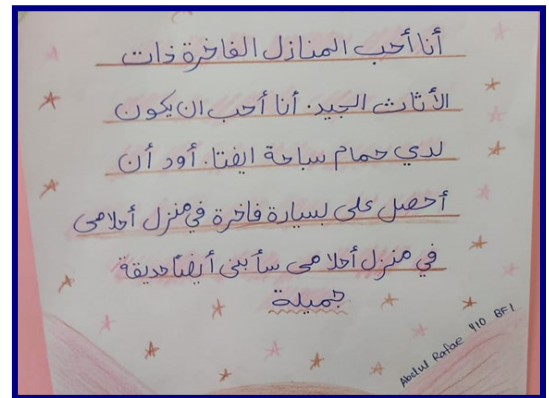 أنا أحب المنازل الفاخرة ذات
الأثاث الجيد. أنا أحب ان يكون
لدي حمام سباحة ايفتا. أود أن
أحصل على لسيارة فاخرة في منزل أحلامى
في منزل أحلامى سأبنى أيضاً حديقة
جميلة
Abdul Rafae 410 BF1